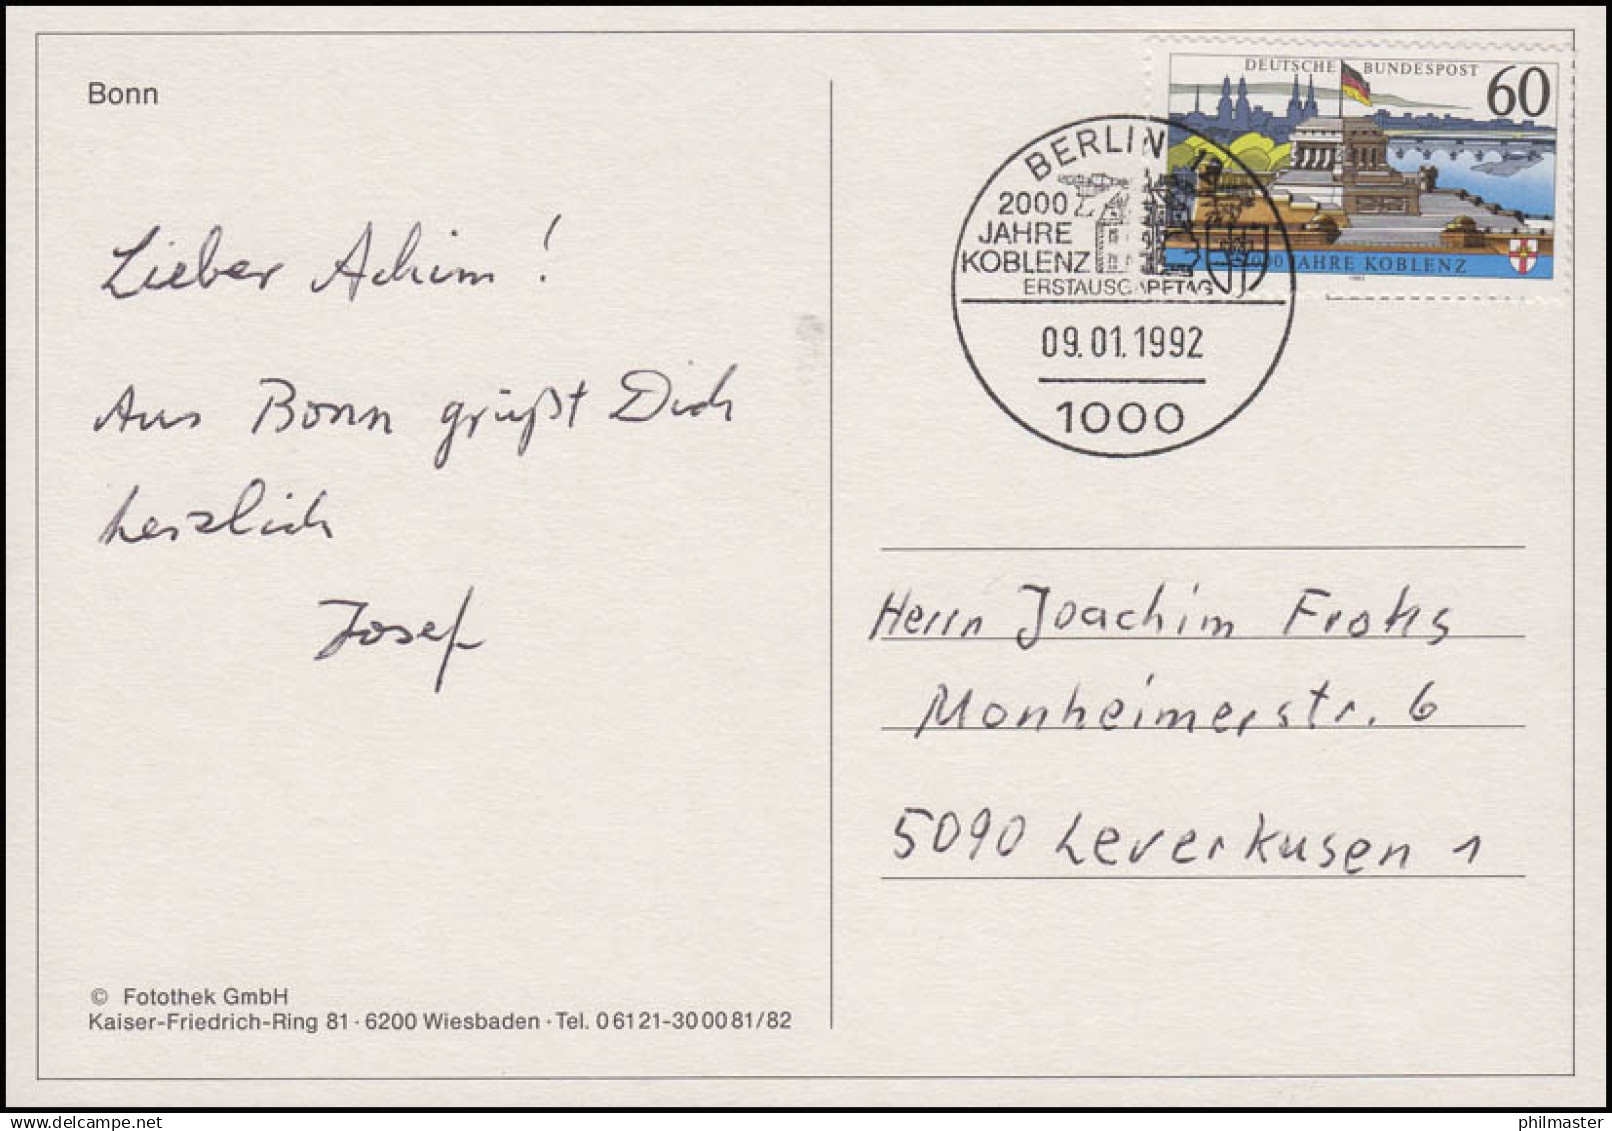 Bonn
Lieber Achim!
Aus Bonn grüßt Dich
herzlich
Josef
© Fotothek GmbH
Kaiser-Friedrich-Ring 81 · 6200 Wiesbaden · Tel. 06121-300081/82
DEUTSCHE BUNDESPOST 60
2000 JAHRE KOBLENZ
BERLIN 12
2000
JAHRE
KOBLENZ
ERSTAUSGABETAG
09.01.1992
1000
Herrn Joachim Frohs
Monheimerstr. 6
5090 Leverkusen 1
philmaster